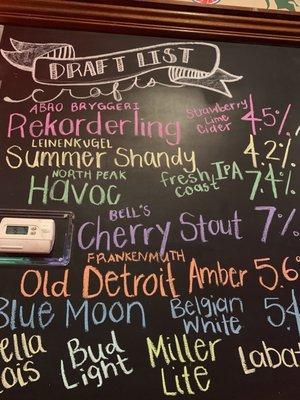 DRAFT LIST
Crafts
ABRO BRYGGERI
Rekorderling Strawberry Lime Cider 4.5%
LEINENKUGEL
Summer Shandy 4.2%
NORTH PEAK
Havoc fresh coast IPA 7.4%
BELL'S
Cherry Stout 7%
FRANKENMUTH
Old Detroit Amber 5.6
Blue Moon Belgian White 5.4
Bud Light
Miller Lite
Labat